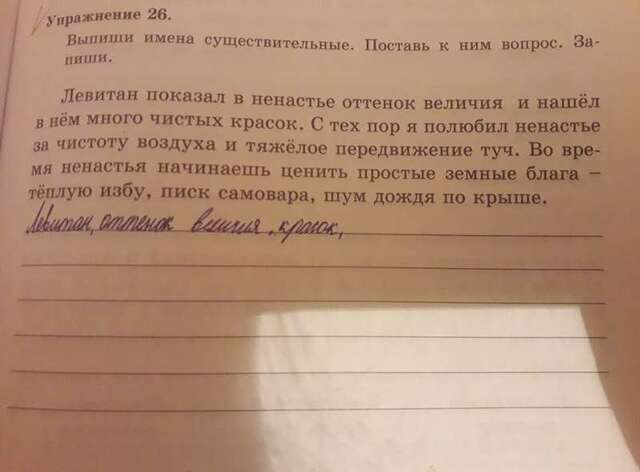 Упражнение 26.
Выпиши имена существительные. Поставь к ним вопрос. За-
пиши.
Левитан показал в ненастье оттенок величия и нашёл
в нём много чистых красок. С тех пор я полюбил ненастье
за чистоту воздуха и тяжёлое передвижение туч. Во вре-
мя ненастья начинаешь ценить простые земные блага –
тёплую избу, писк самовара, шум дождя по крыше.
Левитан, оттенок величия, красок,